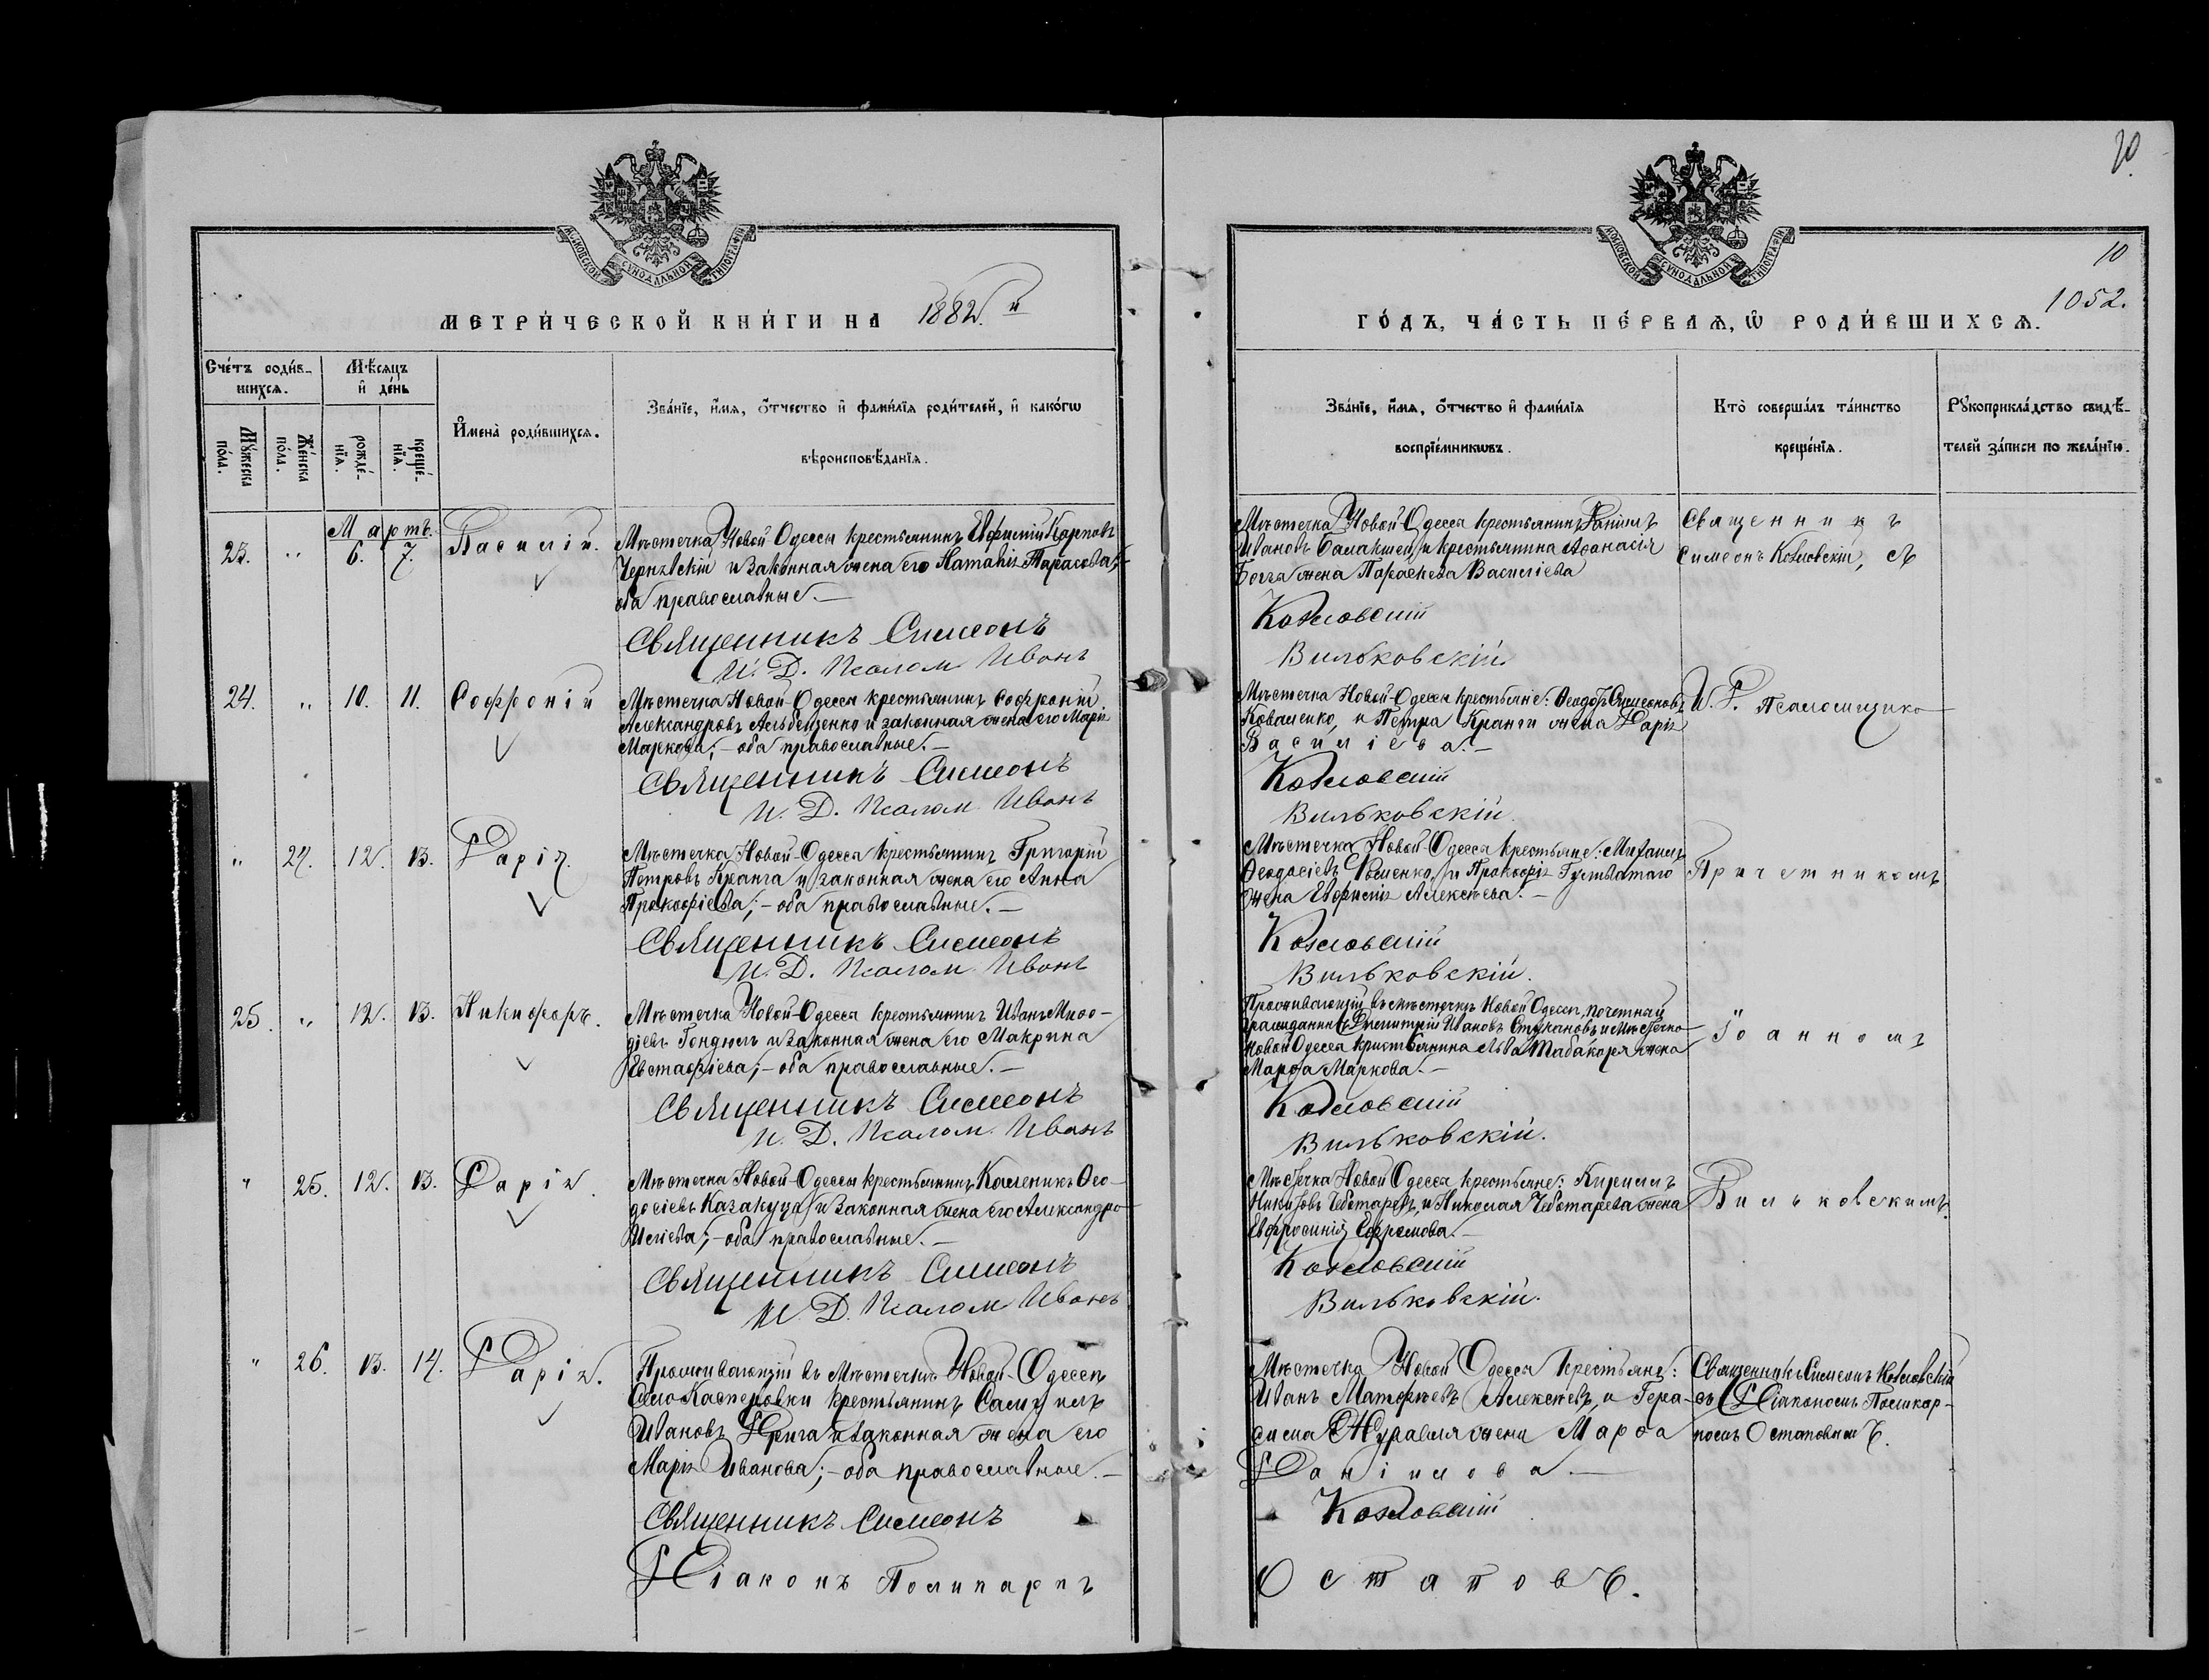 20
МОСКОВСКОЙ СѴНОДАЛЬНОЙ ТИПОГРАФІИ
МОСКОВСКОЙ СѴНОДАЛЬНОЙ ТИПОГРАФІИ
10
1052.
МЕТРИ́ЧЕСКОЙ КНИ́ГИ НА 1882. й
ГО́ДЪ, ЧА́СТЬ ПЕ́РВАѦ, Ѡ҆ РОДИ́ВШИХСѦ.
Сче́тъ роди́в-
шихсѧ.
Мꙋ́жеска по́ла.
Же́нска по́ла.
Мѣ́сѧцъ
и҆ де́нь
рожде́-нїѧ.
креще́-нїѧ.
И҆мена̀ роди́вшихсѧ.
Зва́нїе, и҆́мѧ, ѻ҆́тчество и҆ фами́лїѧ роди́телей, и҆ како́гѡ
вѣроисповѣ́данїѧ.
Зва́нїе, и҆́мѧ, ѻ҆́тчество и҆ фами́лїѧ
воспрїе́мникѡвъ.
Кто̀ соверша́лъ та́инство
креще́нїѧ.
Рꙋкоприкла́дство свидѣ́-
телей за́писи по жела́нїю.
Мартъ.
23. " 6. 7. Василій.
Мѣстечка Новой-Одессы крестьянинъ Евфимій Карповъ
Чернявскій и законная жена его Наталія Тарасова;
оба православные.—
Священникъ Симеонъ
И. Д. Псалом Иванъ
Мѣстечка Новой-Одессы крестьянинъ Даніилъ
Ивановъ и крестьянина Аѳанасія
жена Параскева Васильева
Козловскій
Вильковскій
Священникъ
Симеонъ Козловскій, съ
24. " 10. 11. Софроній
Мѣстечка Новой-Одессы крестьянинъ Софроній
Александровъ и законная жена его Марія
Маркова;— оба православные.—
Священникъ Симеонъ
И. Д. Псалом Иванъ
Мѣстечка Новой-Одессы крестьяне: Ѳеодоръ Симеоновъ
Коваленко, и Петра Кранги жена Дарія
Васильева.—
Козловскій
Вильковскій
И. Д. Псаломщика
" 24. 12. 13. Дарія.
Мѣстечка Новой-Одессы крестьянинъ Григорій
Петровъ Кранга и законная жена его Анна
Прокофіева;— оба православные.—
Священникъ Симеонъ
И. Д. Псалом Иванъ
Мѣстечка Новой-Одессы крестьяне: Михаилъ
Ѳеодосіевъ и Прокофія
жена Евфимія Алексѣева.—
Козловскій
Вильковскій.
Причетникомъ
25. " 12. 13. Никифоръ.
Мѣстечка Новой-Одессы крестьянинъ Иванъ Меѳо-
діевъ Гондюлъ и законная жена его Макрина
Евстафіева;— оба православные.—
Священникъ Симеонъ
И. Д. Псалом. Иванъ
Проживающій въ мѣстечкѣ Новой Одессѣ, почетный
гражданинъ Димитрій Ивановъ Стукановъ и мѣстечка
Новой Одессы крестьянина Льва Табакаря жена
Марѳа Маркова.—
Козловскій
Вильковскій.
Іоанномъ
" 25. 12. 13. Дарія.
Мѣстечка Новой-Одессы крестьянинъ Калленикъ Ѳео-
досіевъ Казакуца и законная жена его Александра
оба православные.—
Священникъ Симеонъ
И. Д. Псалом Иванъ
Мѣстечка Новой Одессы крестьяне: Кириллъ
Чеботаревъ, и Николая Чеботарева жена
Евфросинія Ефремова.—
Козловскій
Вильковскій.
Вильковскимъ.
" 26. 13. 14. Дарія.
Проживающій въ Мѣстечкѣ Новой-Одессѣ
Село-Касперовки крестьянинъ Самуилъ
Ивановъ и законная жена его
Марія Иванова;— оба православные.—
Священникъ Симеонъ
Діаконъ Поликарпъ
Мѣстечка Новой Одессы крестьяне:
Иванъ Матѳѣевъ Алексѣевъ, и Гера-
сима Журавля жена Марѳа
Даніилова.—
Козловскій
Остаповъ.
Священникъ Симеонъ Козловскій
съ Діакономъ Поликар-
помъ Остаповымъ.